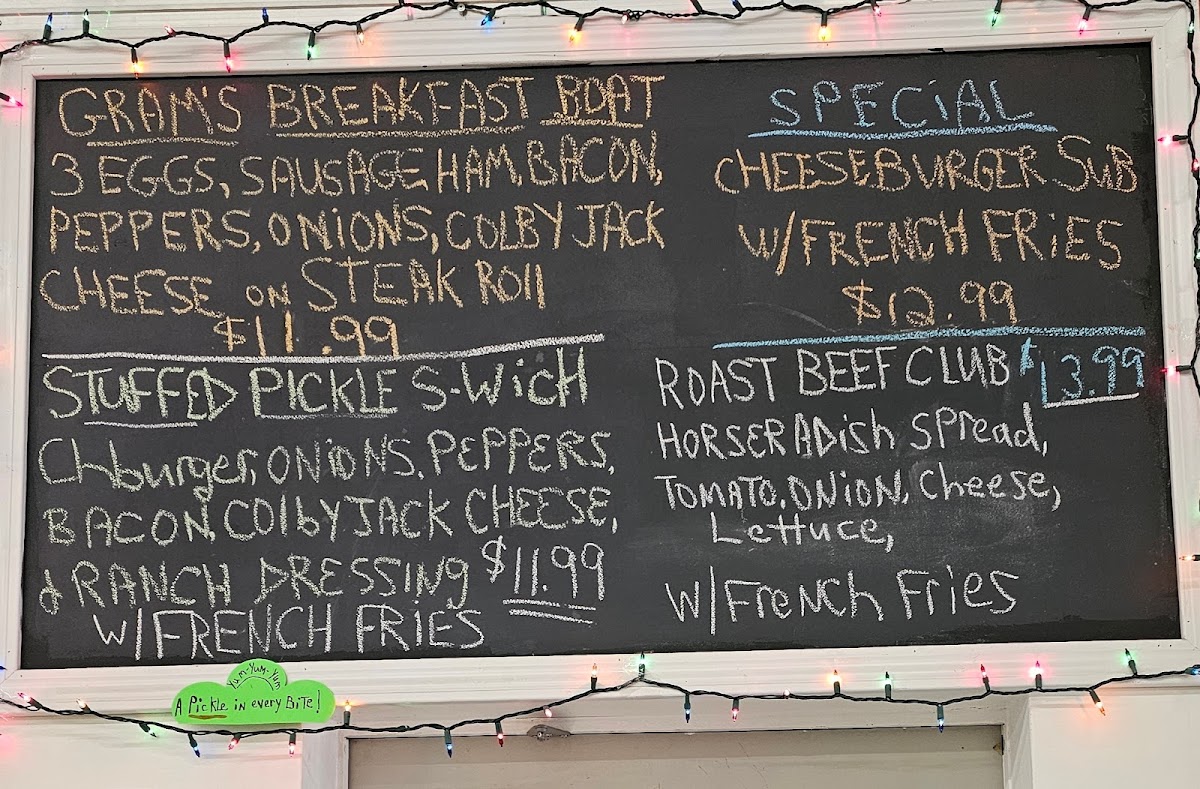 GRAM'S BREAKFAST BOAT
3 EGGS, SAUSAGE, HAM, BACON,
PEPPERS, ONIONS, COLBY JACK
CHEESE ON STEAK ROll
$11.99
STUFFED PICKLE S-WicH
Chburger, ONIONS, PEPPERS,
BACON, COlbyJACK CHEESE,
& RANCH DRESSING $11.99
W/FRENCH FRIES
SPECiAL
CHEESEBURGER SUB
W/FRENCH FRiES
$12.99
ROAST BEEF CLUB $13.99
HORSERADish SPread,
TOMATO, ONiON, Cheese,
Lettuce,
W/French Fries
Yum-Yum-Yum
A Pickle in every BiTe!